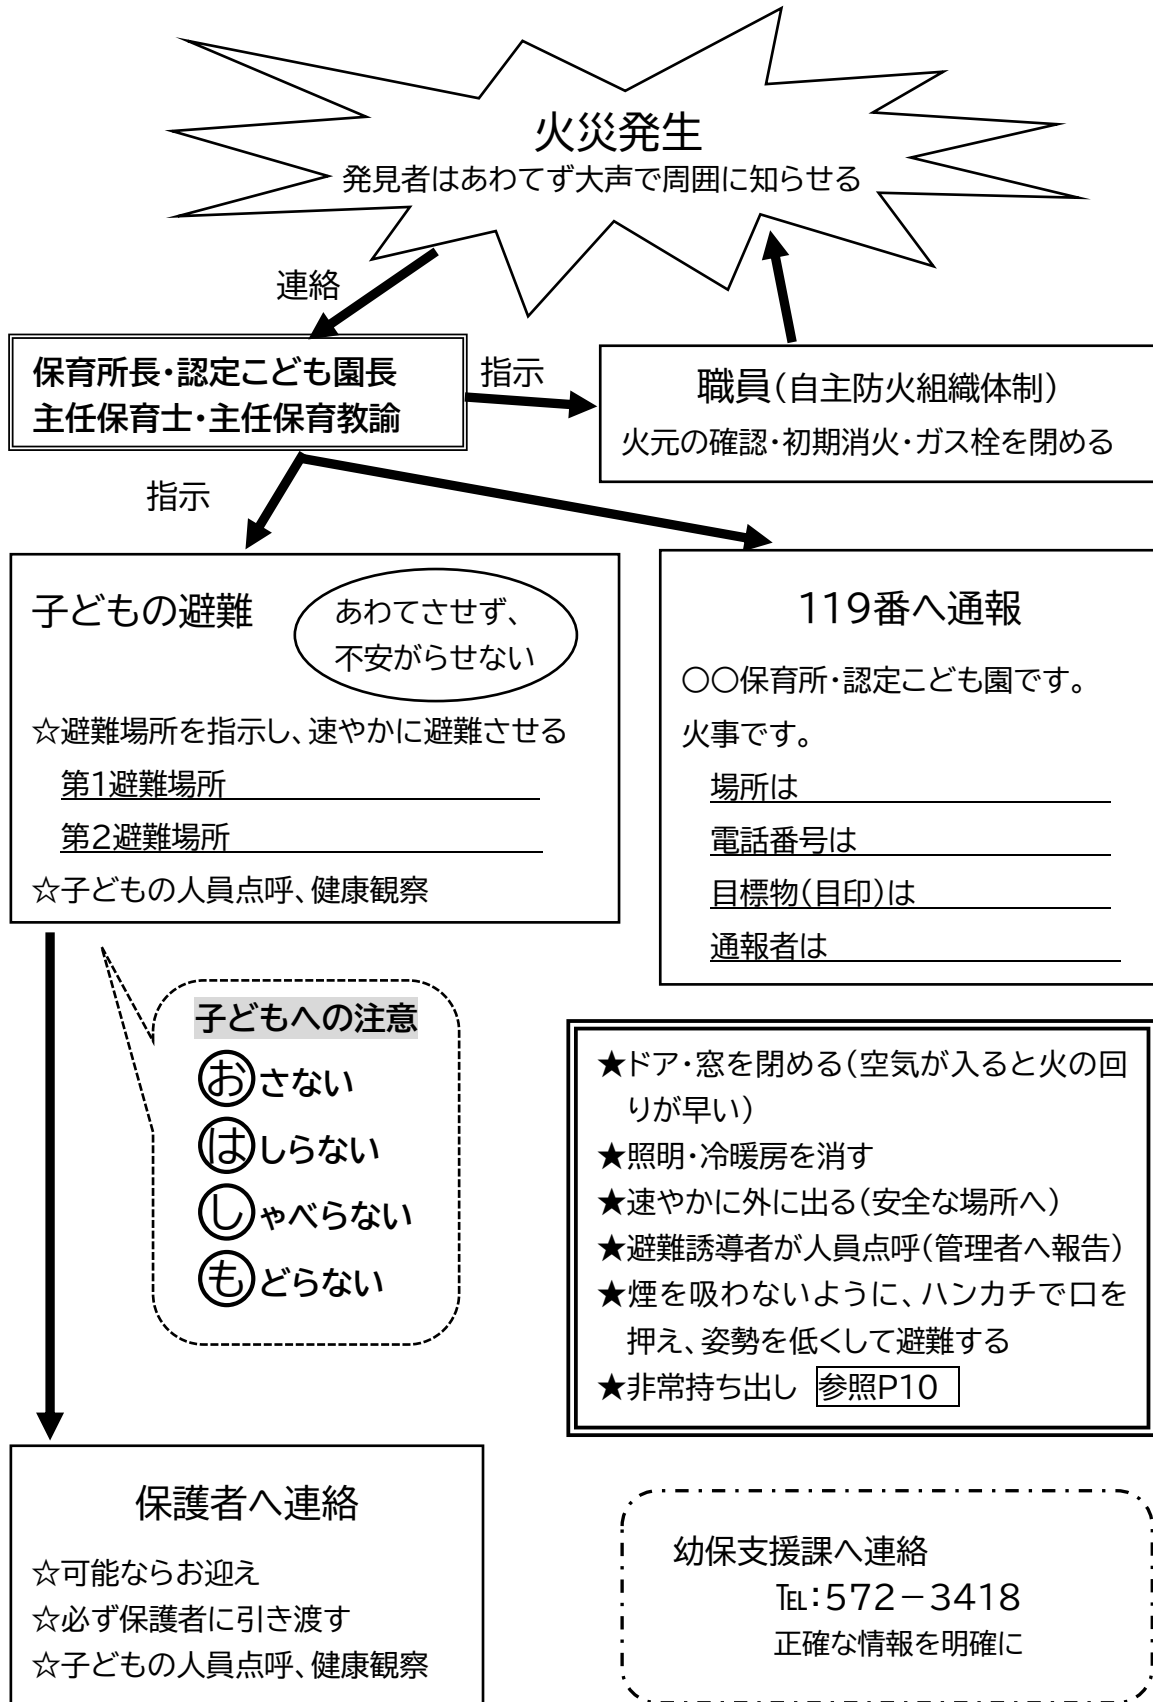 火災発生
発見者はあわてず大声で周囲に知らせる
連絡
保育所長・認定こども園長
主任保育士・主任保育教諭
指示
職員(自主防火組織体制)
火元の確認・初期消火・ガス栓を閉める
指示
子どもの避難
あわてさせず、
不安がらせない
☆避難場所を指示し、速やかに避難させる
第1避難場所
第2避難場所
☆子どもの人員点呼、健康観察
119番へ通報
〇〇保育所・認定こども園です。
火事です。
場所は
電話番号は
目標物(目印)は
通報者は
子どもへの注意
おさない
はしらない
しゃべらない
もどらない
★ドア・窓を閉める(空気が入ると火の回
りが早い)
★照明・冷暖房を消す
★速やかに外に出る(安全な場所へ)
★避難誘導者が人員点呼(管理者へ報告)
★煙を吸わないように、ハンカチで口を
押え、姿勢を低くして避難する
★非常持ち出し 参照P10
保護者へ連絡
☆可能ならお迎え
☆必ず保護者に引き渡す
☆子どもの人員点呼、健康観察
幼保支援課へ連絡
℡:572-3418
正確な情報を明確に